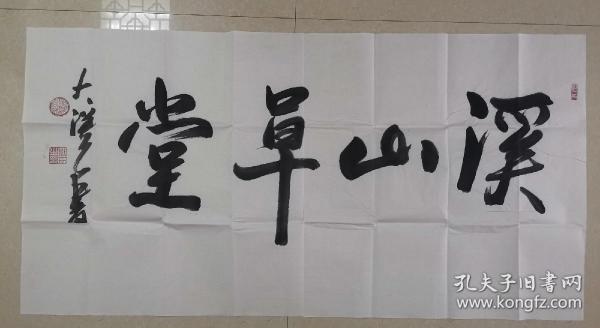 溪山草堂
孔夫子旧书网
www.kongfz.com